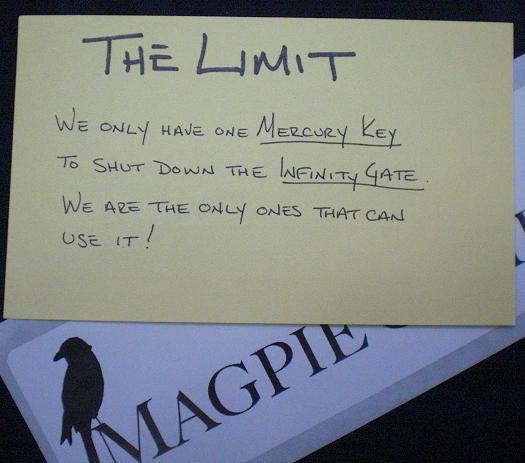 THE LIMIT
WE ONLY HAVE ONE MERCURY KEY
TO SHUT DOWN THE INFINITY GATE.
WE ARE THE ONLY ONES THAT CAN
USE IT!
MAGPIE